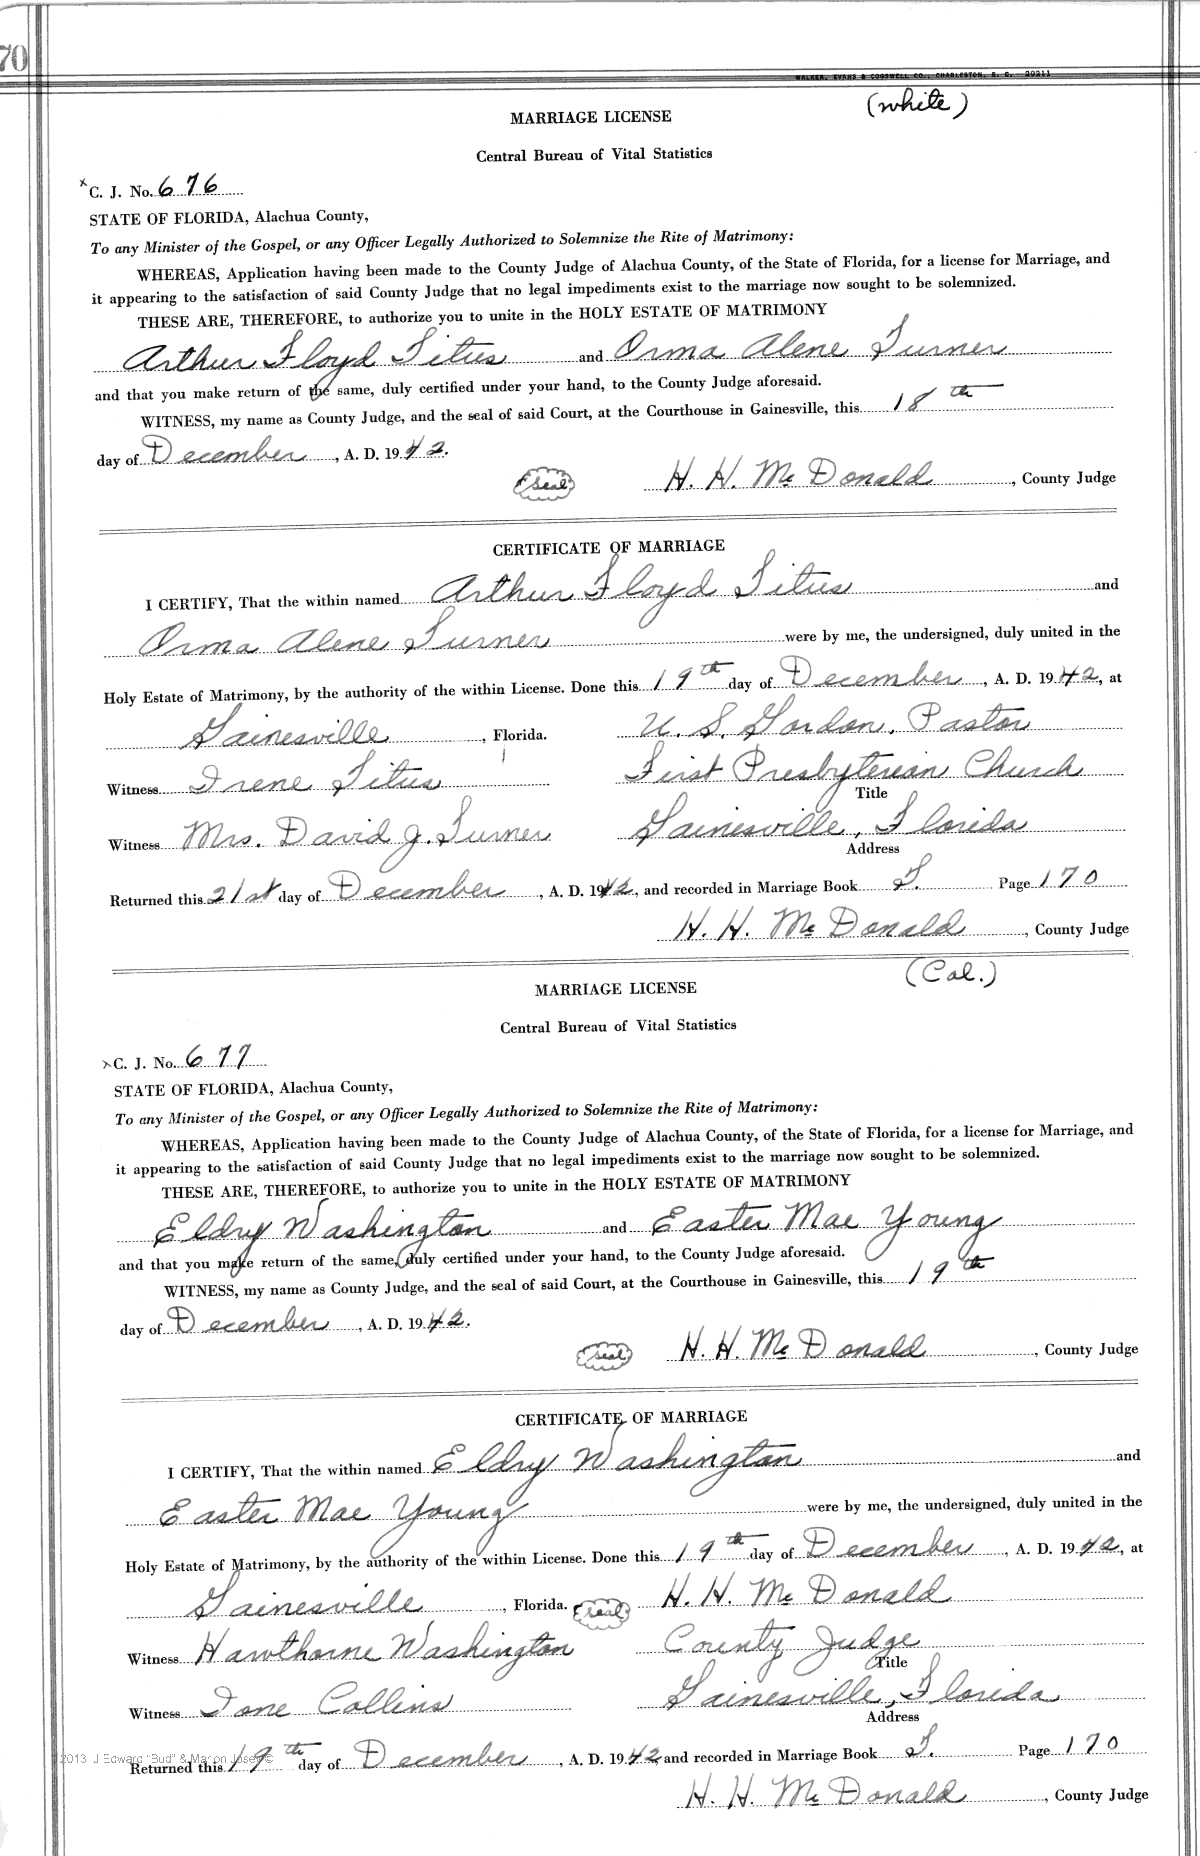 70
WALKER, EVANS & COGSWELL CO., CHARLESTON, S. C. 20211
(white)
MARRIAGE LICENSE
Central Bureau of Vital Statistics
x C. J. No. 676
STATE OF FLORIDA, Alachua County,
To any Minister of the Gospel, or any Officer Legally Authorized to Solemnize the Rite of Matrimony:
WHEREAS, Application having been made to the County Judge of Alachua County, of the State of Florida, for a license for Marriage, and
it appearing to the satisfaction of said County Judge that no legal impediments exist to the marriage now sought to be solemnized.
THESE ARE, THEREFORE, to authorize you to unite in the HOLY ESTATE OF MATRIMONY
Arthur Floyd Titus and Orma Alene Turner
and that you make return of the same, duly certified under your hand, to the County Judge aforesaid.
WITNESS, my name as County Judge, and the seal of said Court, at the Courthouse in Gainesville, this 18th
day of December, A. D. 1942.
seal H. H. McDonald, County Judge
CERTIFICATE OF MARRIAGE
I CERTIFY, That the within named Arthur Floyd Titus and
Orma Alene Turner were by me, the undersigned, duly united in the
Holy Estate of Matrimony, by the authority of the within License. Done this 19th day of December, A. D. 1942, at
Gainesville, Florida. U. S. Gordon, Pastor
Witness Irene Titus First Presbyterian Church
Title
Witness Mrs. David J. Turner Gainesville, Florida
Address
Returned this 21st day of December, A. D. 1942, and recorded in Marriage Book T. Page 170
H. H. McDonald, County Judge
(Col.)
MARRIAGE LICENSE
Central Bureau of Vital Statistics
x C. J. No. 677
STATE OF FLORIDA, Alachua County,
To any Minister of the Gospel, or any Officer Legally Authorized to Solemnize the Rite of Matrimony:
WHEREAS, Application having been made to the County Judge of Alachua County, of the State of Florida, for a license for Marriage, and
it appearing to the satisfaction of said County Judge that no legal impediments exist to the marriage now sought to be solemnized.
THESE ARE, THEREFORE, to authorize you to unite in the HOLY ESTATE OF MATRIMONY
Eldry Washington and Easter Mae Young
and that you make return of the same, duly certified under your hand, to the County Judge aforesaid.
WITNESS, my name as County Judge, and the seal of said Court, at the Courthouse in Gainesville, this 19th
day of December, A. D. 1942.
seal H. H. McDonald, County Judge
CERTIFICATE OF MARRIAGE
I CERTIFY, That the within named Eldry Washington and
Easter Mae Young were by me, the undersigned, duly united in the
Holy Estate of Matrimony, by the authority of the within License. Done this 19th day of December, A. D. 1942, at
Gainesville, Florida. seal H. H. McDonald
Witness Hawthorne Washington County Judge
Title
Witness Ione Collins Gainesville, Florida
Address
2013 J Edward "Bud" & Marion Josey ©
Returned this 19th day of December, A. D. 1942 and recorded in Marriage Book T. Page 170
H. H. McDonald, County Judge